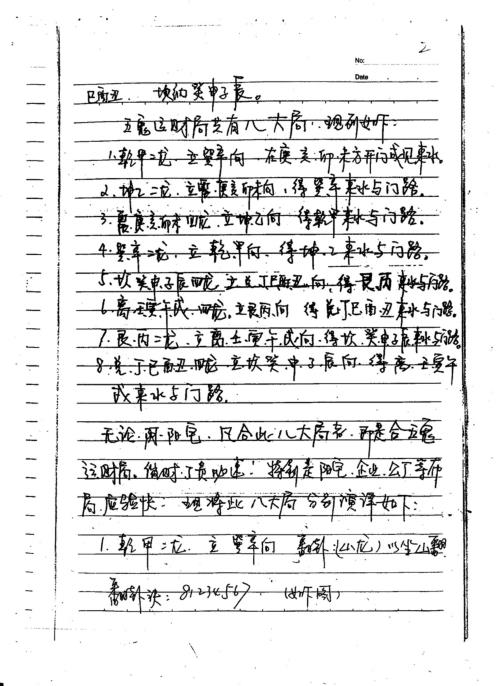 2
No:
Date
巳酉丑. 坎纳癸申子辰。
五鬼运财局共有八大局. 现列如下:
1.乾甲二龙. 立巽辛向. 在庚亥卯未方开门或见来水.
2.坤乙二龙. 立震庚亥卯未向, 得巽辛来水与门路.
3.震庚亥卯未四龙. 立坤乙向 得乾甲来水与门路.
4.巽辛二龙. 立乾甲向. 得坤乙来水与门路.
5.坎癸申子辰四龙 立兑丁巳酉丑向. 得艮丙来水与门路.
6.离壬寅午戌四龙. 立艮丙向 得兑丁巳酉丑来水与门路.
7.艮丙二龙. 立离壬寅午戌向. 得坎癸申子辰来水与门路.
8.兑丁巳酉丑四龙 立坎癸申子辰向. 得离壬寅午
戌来水与门路.
无论阴阳宅. 只合此八大局者. 即是合五鬼
运财局. 催财丁贵 特别是阳宅. 企业. 公丁等布
局应验快: 现将此八大局分别演译如下:
1.乾甲二龙 立巽辛向 翻卦:(山龙)以坐山翻
翻卦诀: 81234567 (如下图)